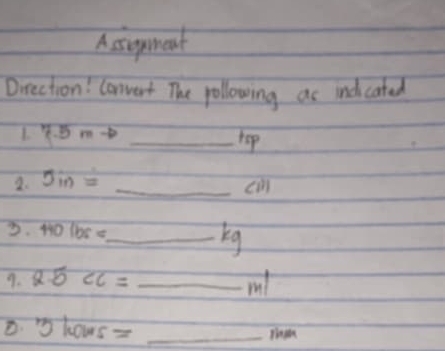 Assignment
Direction! Convert The following as indicated
1. 7.5 m → ________ tsp
2. 5 in = ________ cm
3. 440 lbs = ________ kg
4. 25 cc = ________ ml
5. 3 hours = ________